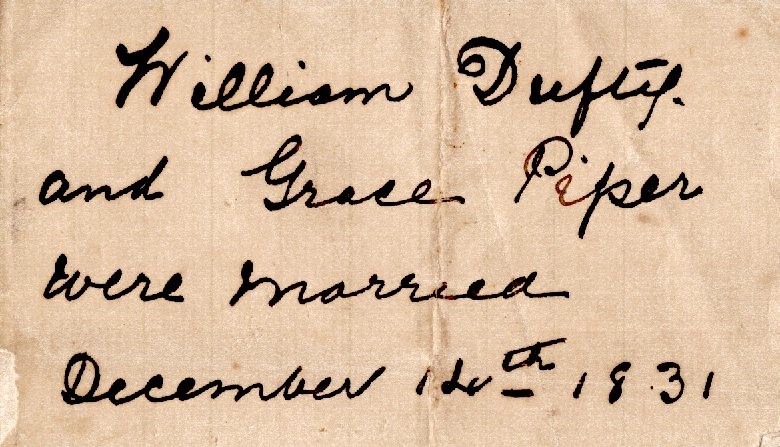 William Dufty.
and Grace Piper
were married
December 14th 1831